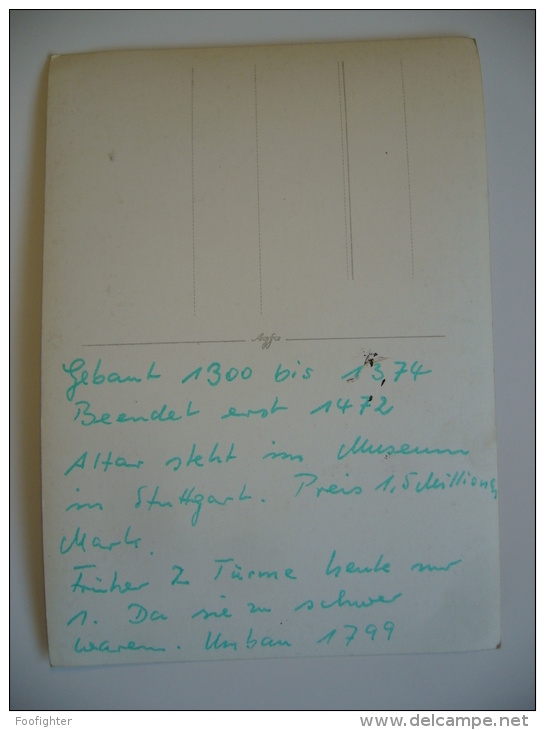 Agfa
Gebaut 1300 bis 1374
Beendet erst 1472
Altar steht im Museum
in Stuttgart. Preis 1,5 Millionen
Mark.
Früher 2 Türme heute nur
1. Da sie zu schwer
waren. Umbau 1799
Foofighter
www.delcampe.net